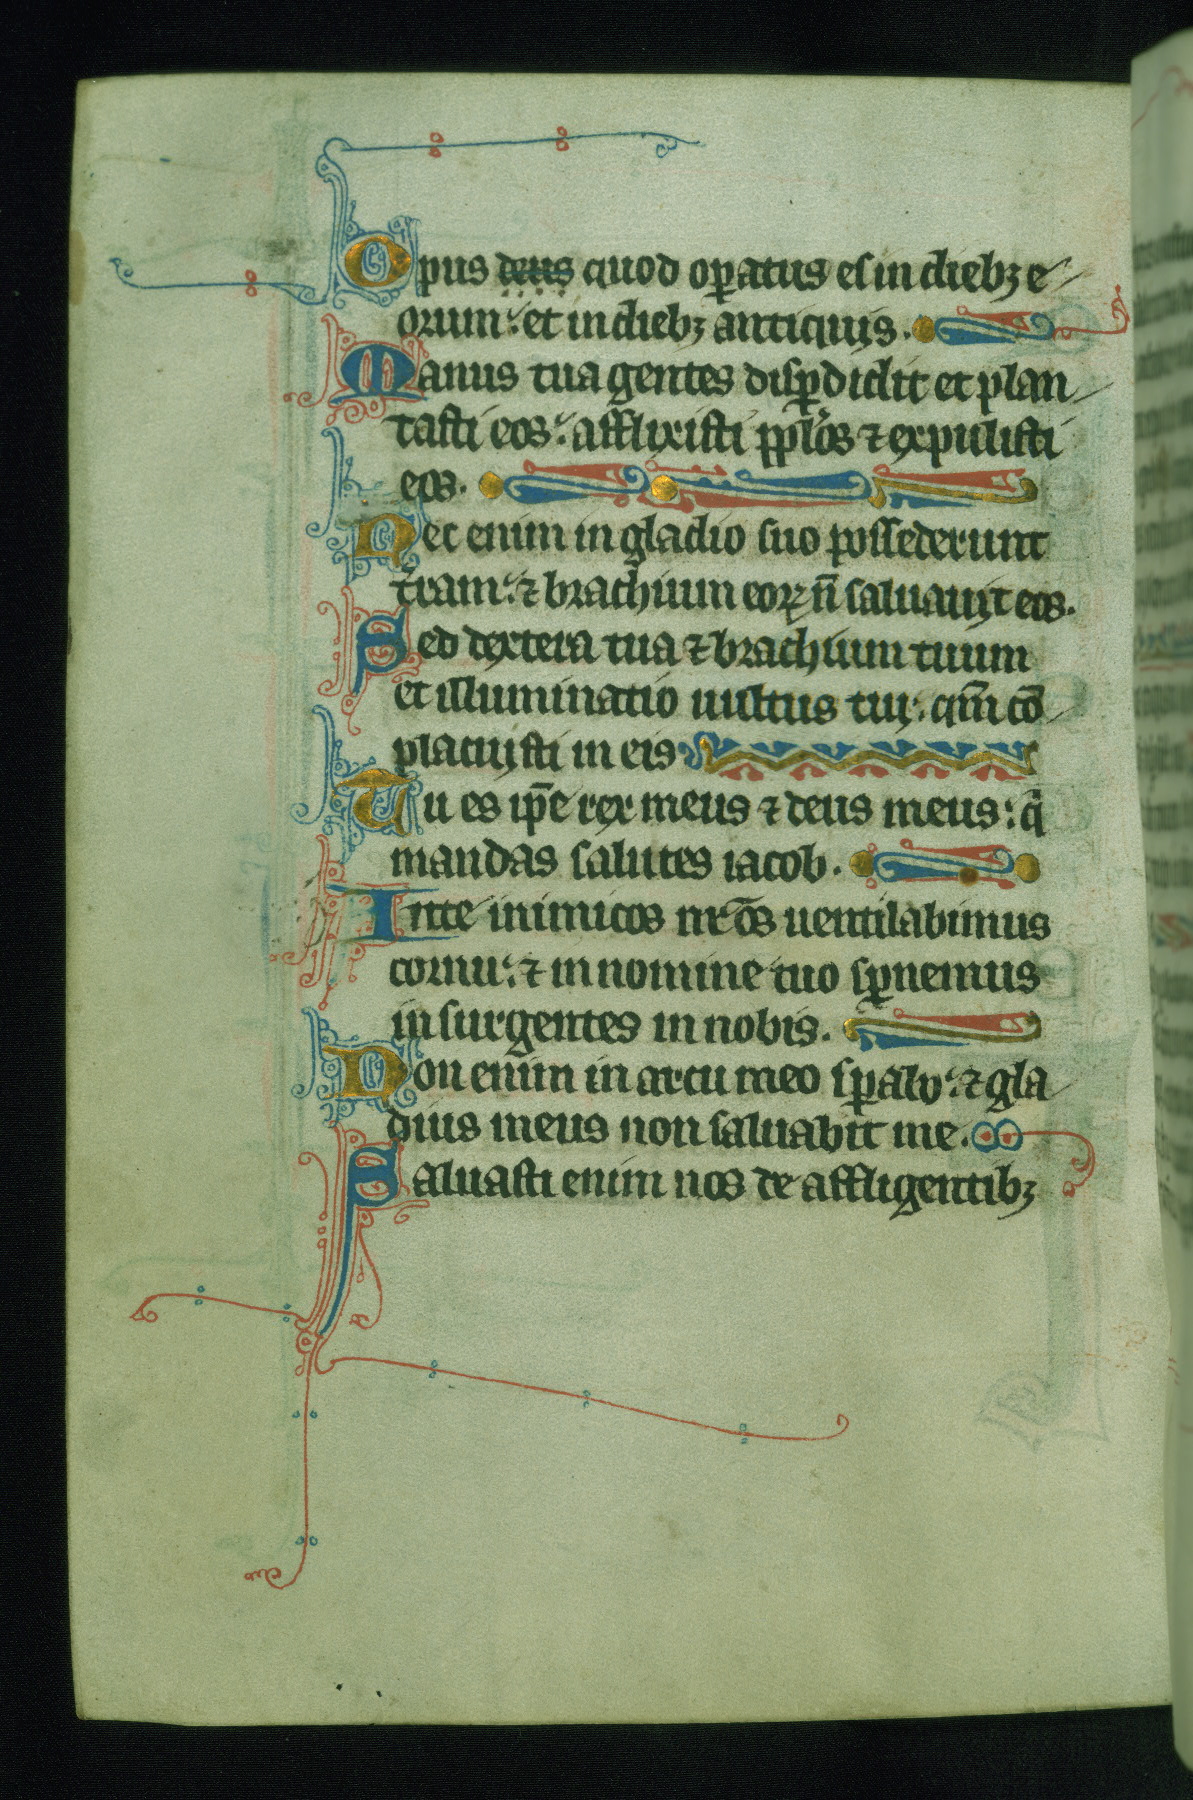 Opus deus quod op̲atus es in dieb⁊ e
orum: et in dieb⁊ antiquis.
Manus tua gentes disp̲didit et plan
tasti eos: afflixisti pp̲l̄os ⁊ expulisti
eos.
Nec enim in gladio suo possederunt
t̄ram: ⁊ brachium eoꝝ n̄ saluauit eos.
Sed dextera tua ⁊ brachium tuum
et illuminatio uultus tui: qm̄ cō
placuisti in eis
Tu es ip̄e rex meus ⁊ deus meus: q̄
mandas salutes iacob.
In te inimicos nr̄os uentilabimus
cornu: ⁊ in nomine tuo sp̲nemus
insurgentes in nobis.
Non enim in arcu meo sp̲abo: ⁊ gla
dius meus non saluabit me.
Saluasti enim nos de affligentib⁊